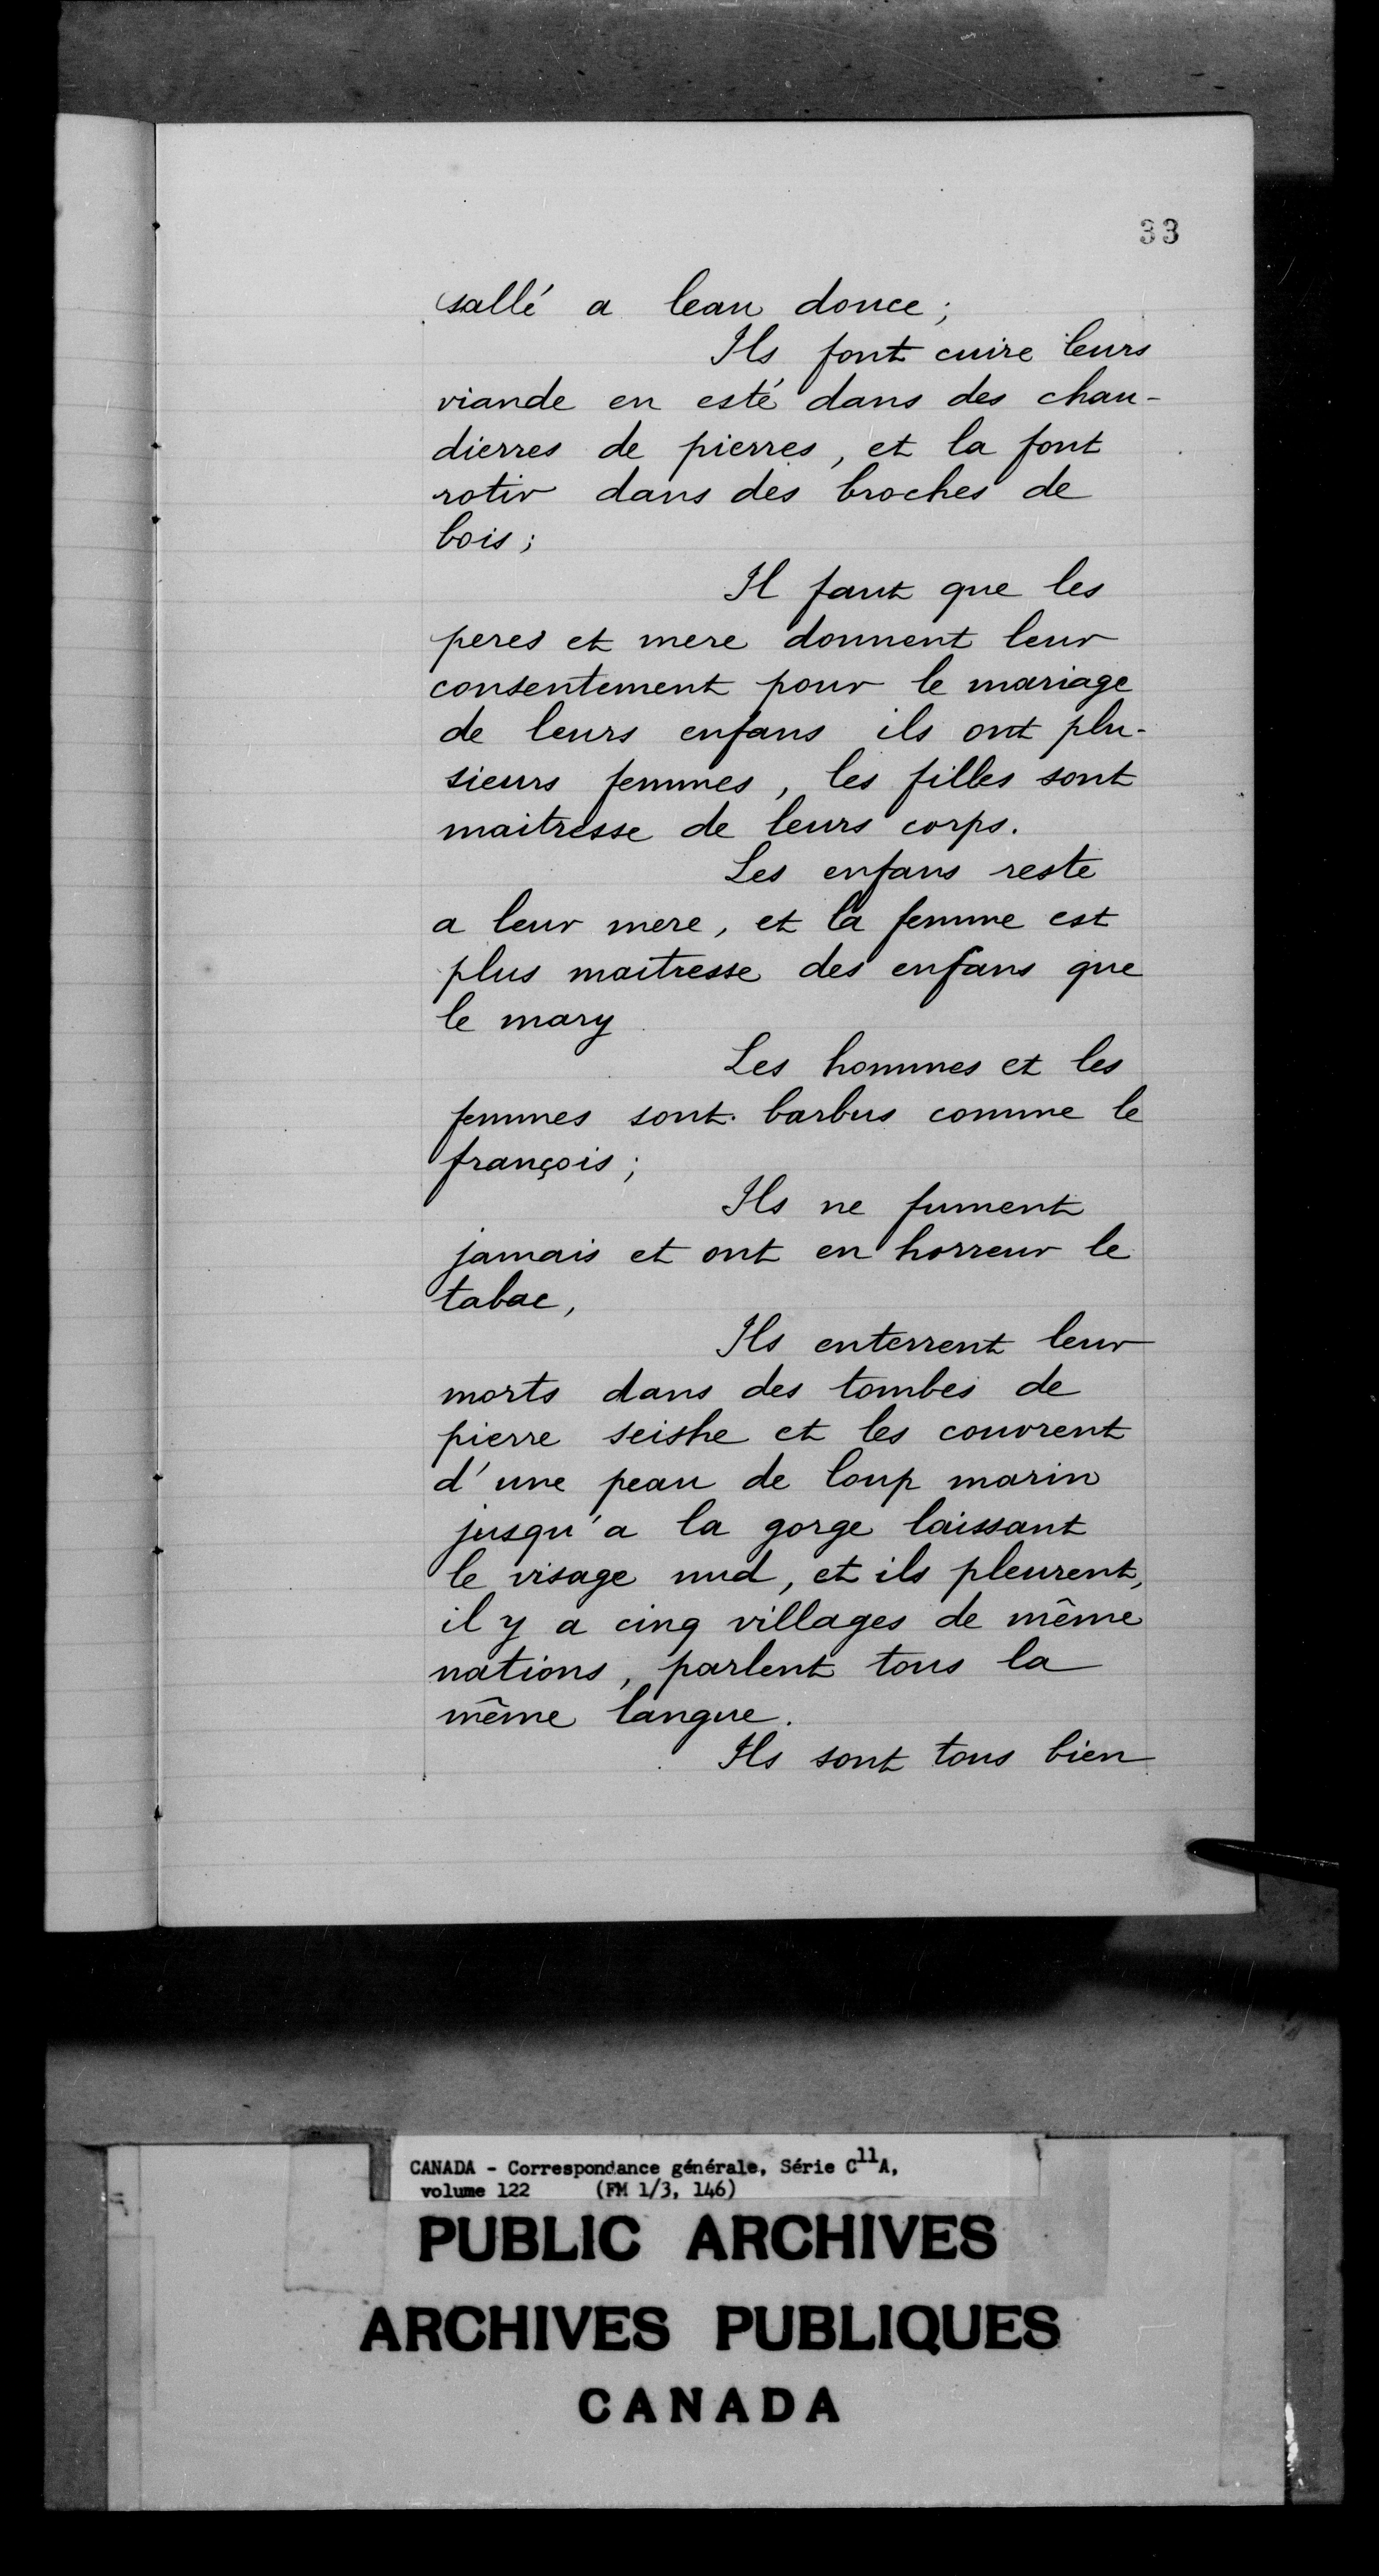 33
sallé a leau douce ;
Ils font cuire leurs
viande en esté dans des chau-
dierres de pierres, et la font
rotir dans des broches de
bois ;
Il faut que les
peres et mere donnent leur
consentement pour le mariage
de leurs enfans ils ont plu-
sieurs femmes, les filles sont
maitresse de leurs corps.
Les enfans reste
a leur mere, et la femme est
plus maitresse des enfans que
le mary
Les hommes et les
femmes sont barbus comme le
françois ;
Ils ne fument
jamais et ont en horreur le
tabac,
Ils enterrent leur
morts dans des tombes de
pierre seishe et les couvrent
d'une peau de loup marin
jusqu'a la gorge laissant
le visage nud, et ils pleurent,
il y a cinq villages de même
nations, parlent tous la
même langue.
Ils sont tous bien
CANADA - Correspondance générale, Série C11A,
volume 122 (FM 1/3, 146)
PUBLIC ARCHIVES
ARCHIVES PUBLIQUES
CANADA